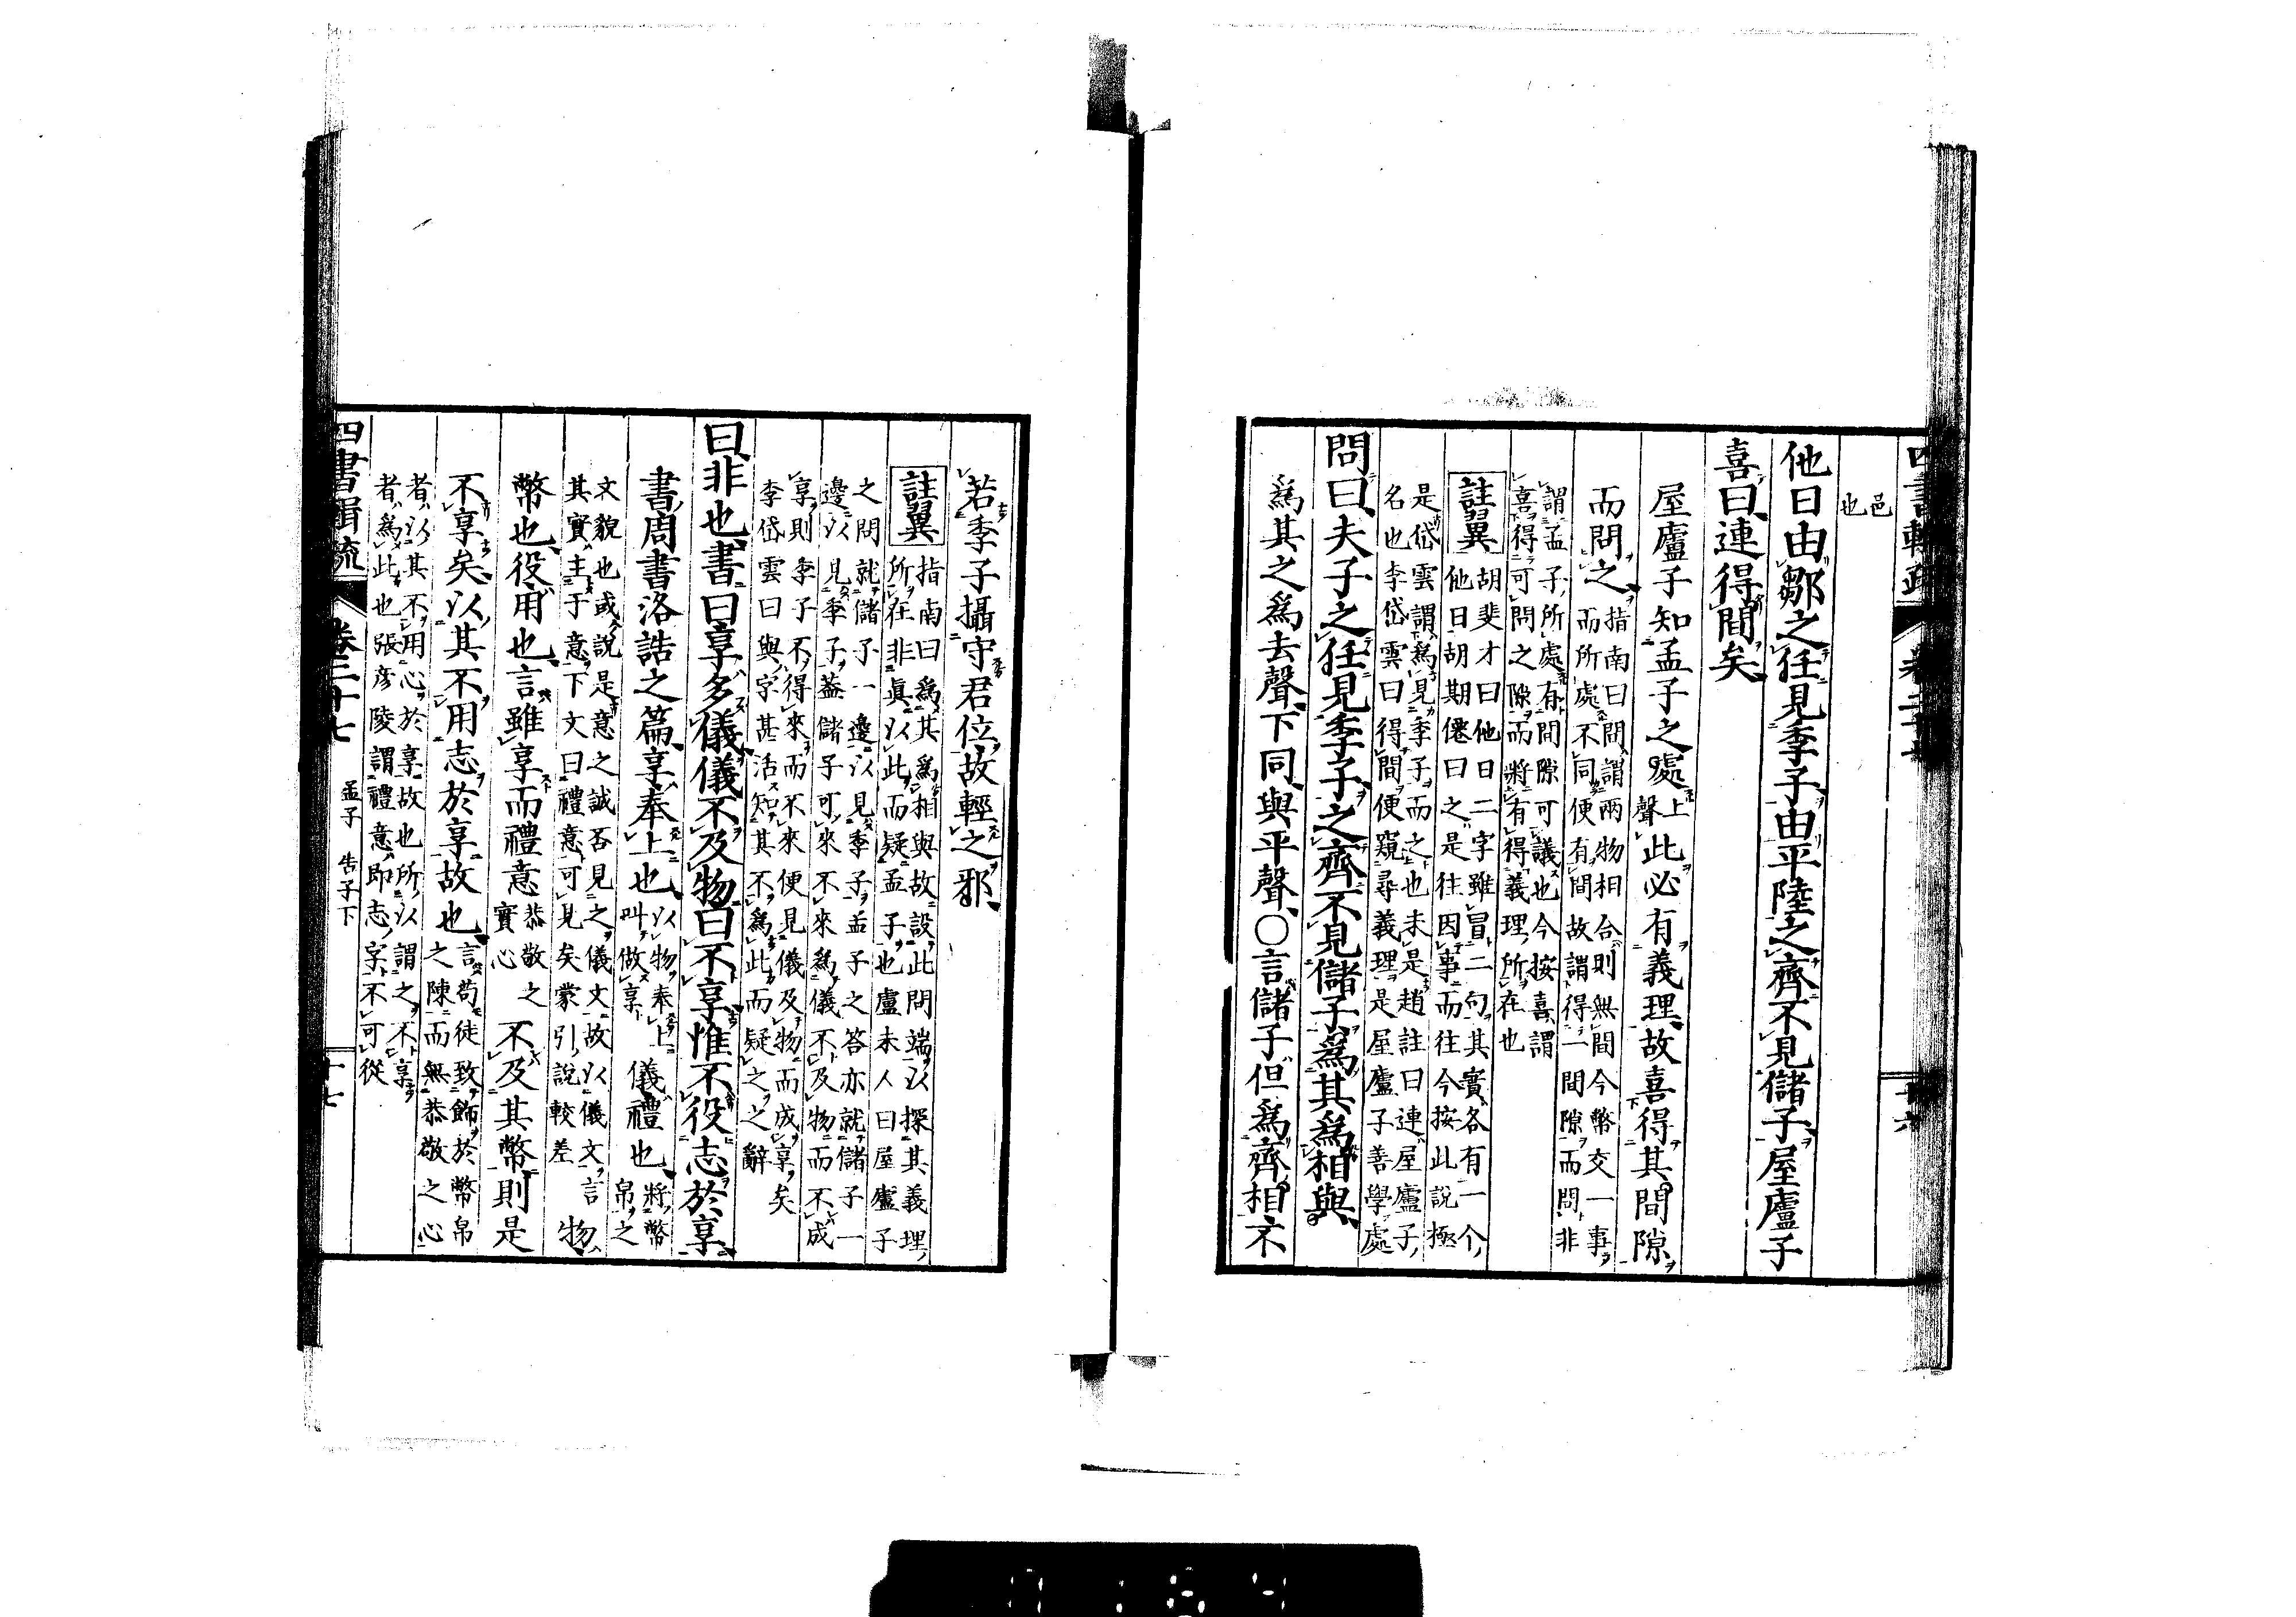 邑
也
他日由鄒之任見季子由平陸之齊不見儲子屋廬子
喜曰連得間矣
屋廬子知孟子之處上聲此必有義理故喜得其間隙
而問之指南曰間謂兩物相合則無間今幣交一事
而所處不同便有間故謂得一間隙而問非
謂孟子所處有間隙可議也今按喜謂
喜得可問之隙而將有得義理所在也
註翼胡斐才曰他日二字雖冒二句其實各有一个
他日胡期僊曰之是往因事而往今按此說極
是岱雲謂為見季子而之也未是趙註曰連屋廬子
名也李岱雲曰得間便窺尋義理是屋廬子善學處
問曰夫子之任見季子之齊不見儲子為其為相與
為其之為去聲下同與平聲○言儲子但為齊相不
若季子攝守君位故輕之邪
註翼指南曰為其為相與故設此問端以探其義理
所在非真以此而疑孟子也盧未人曰屋廬子
之問就儲子一邊以見季子孟子之答亦就儲子一
邊以見季子蓋儲子可來不來為儀不及物而不成
享則季子不得來而不來便見儀及物而成享矣
李岱雲曰與字甚活知其不為此而疑之之辭
曰非也書曰享多儀儀不及物曰不享惟不役志於享
書周書洛誥之篇享奉上也以物奉上叫做享儀禮也將幣帛之
文貌也或說是意之誠否見之儀文故以儀文言物
其實主于意下文曰禮意可見矣蒙引說較差
幣也役用也言雖享而禮意恭敬之實心不及其幣則是
不享矣以其不用志於享故也言苟徒致飾於幣帛
之陳而無恭敬之心
者以其不用心於享故也所以謂之不享
者為此也張彥陵謂禮意即志字不可從
四書輯疏
卷二十七
孟子 告子下
十七